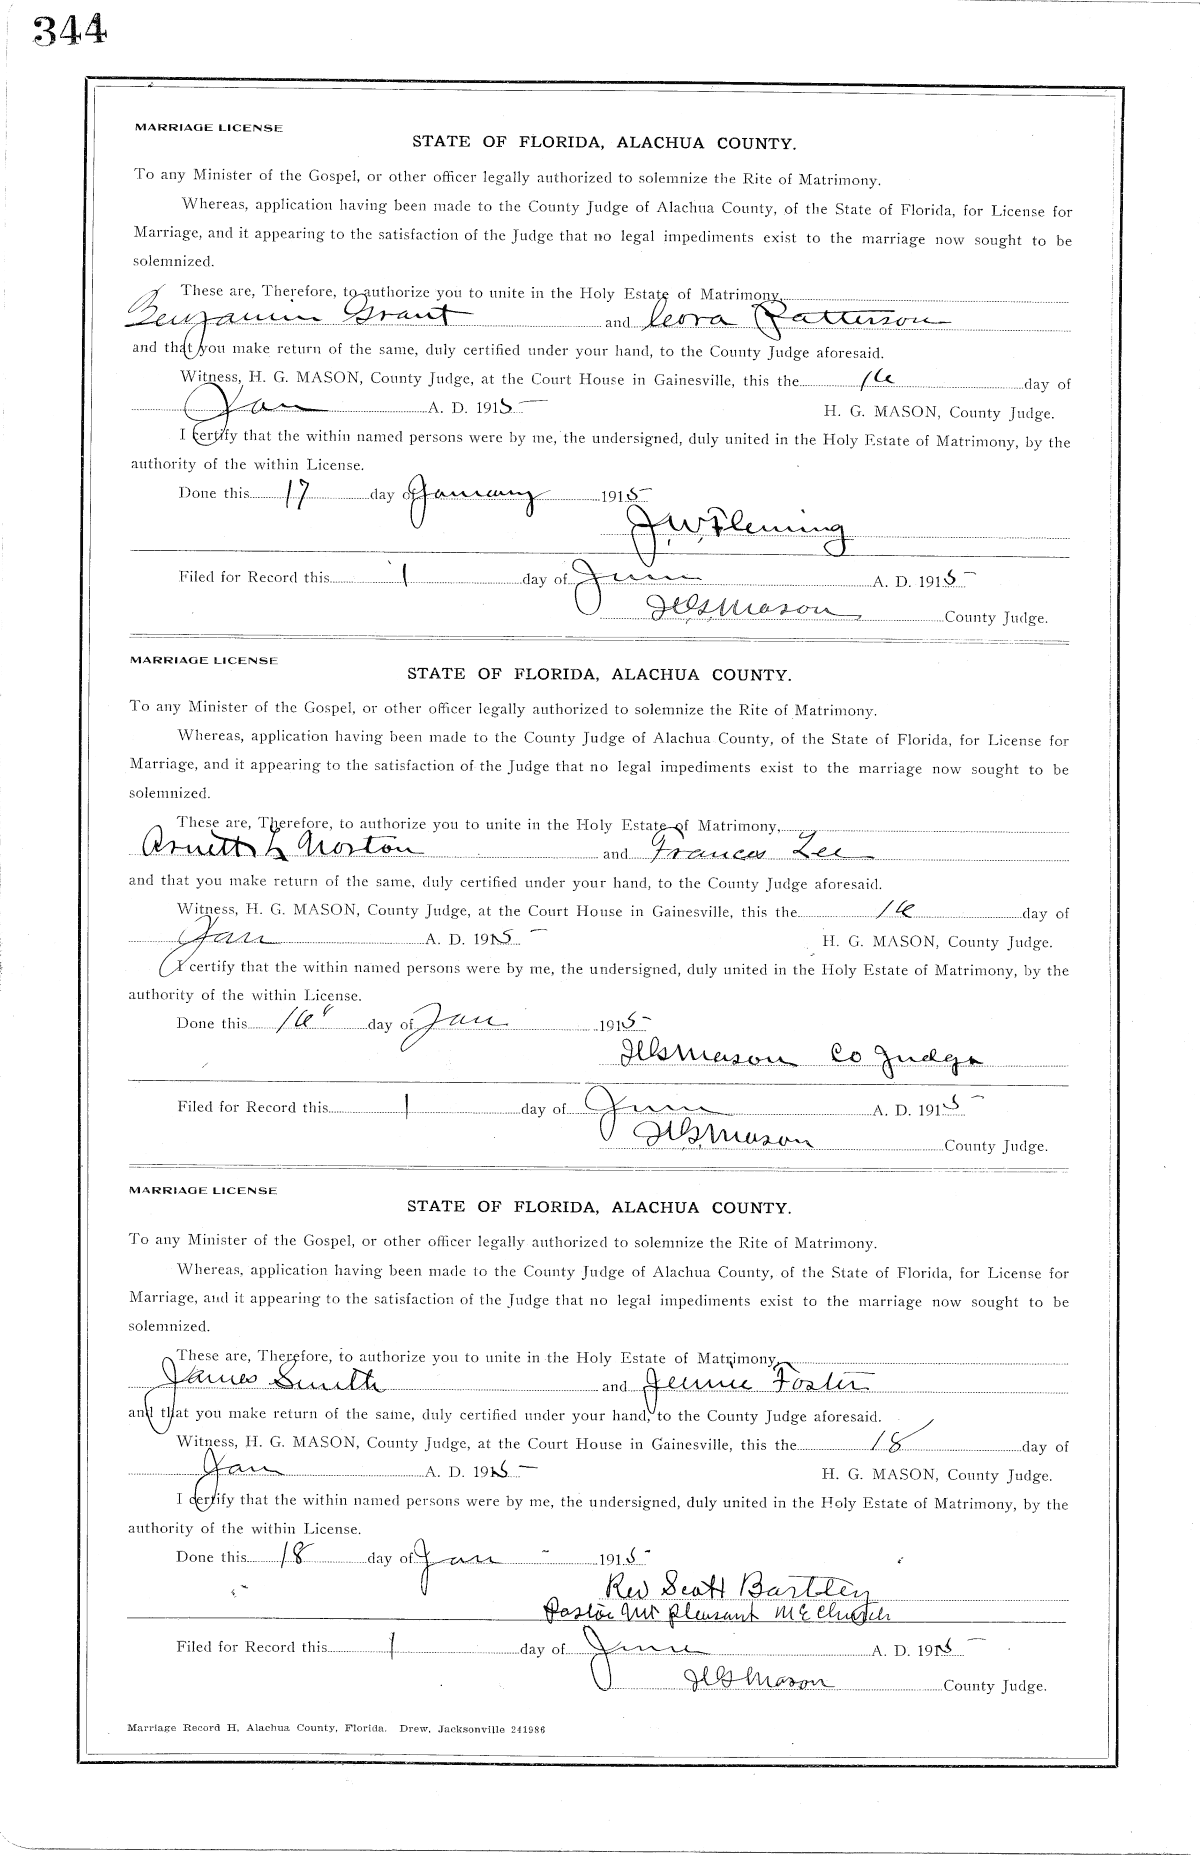 344
MARRIAGE LICENSE
STATE OF FLORIDA, ALACHUA COUNTY.
To any Minister of the Gospel, or other officer legally authorized to solemnize the Rite of Matrimony.
Whereas, application having been made to the County Judge of Alachua County, of the State of Florida, for License for
Marriage, and it appearing to the satisfaction of the Judge that no legal impediments exist to the marriage now sought to be
solemnized.
These are, Therefore, to authorize you to unite in the Holy Estate of Matrimony,
Benjamin Grant and Leora Patterson
and that you make return of the same, duly certified under your hand, to the County Judge aforesaid.
Witness, H. G. MASON, County Judge, at the Court House in Gainesville, this the 16 day of
Jan A. D. 1915 H. G. MASON, County Judge.
I certify that the within named persons were by me, the undersigned, duly united in the Holy Estate of Matrimony, by the
authority of the within License.
Done this 17 day of January 1915
J. W. Fleming
Filed for Record this 1 day of June A. D. 1915
H. G. Mason County Judge.
MARRIAGE LICENSE
STATE OF FLORIDA, ALACHUA COUNTY.
To any Minister of the Gospel, or other officer legally authorized to solemnize the Rite of Matrimony.
Whereas, application having been made to the County Judge of Alachua County, of the State of Florida, for License for
Marriage, and it appearing to the satisfaction of the Judge that no legal impediments exist to the marriage now sought to be
solemnized.
These are, Therefore, to authorize you to unite in the Holy Estate of Matrimony,
Arnett L Norton and Frances Lee
and that you make return of the same, duly certified under your hand, to the County Judge aforesaid.
Witness, H. G. MASON, County Judge, at the Court House in Gainesville, this the 16 day of
Jan A. D. 1915 H. G. MASON, County Judge.
I certify that the within named persons were by me, the undersigned, duly united in the Holy Estate of Matrimony, by the
authority of the within License.
Done this 16" day of Jan 1915
H G Mason Co Judge
Filed for Record this 1 day of June A. D. 1915
H. G. Mason County Judge.
MARRIAGE LICENSE
STATE OF FLORIDA, ALACHUA COUNTY.
To any Minister of the Gospel, or other officer legally authorized to solemnize the Rite of Matrimony.
Whereas, application having been made to the County Judge of Alachua County, of the State of Florida, for License for
Marriage, and it appearing to the satisfaction of the Judge that no legal impediments exist to the marriage now sought to be
solemnized.
These are, Therefore, to authorize you to unite in the Holy Estate of Matrimony,
James Smith and Jennie Foster
and that you make return of the same, duly certified under your hand, to the County Judge aforesaid.
Witness, H. G. MASON, County Judge, at the Court House in Gainesville, this the 18 day of
Jan A. D. 1915 H. G. MASON, County Judge.
I certify that the within named persons were by me, the undersigned, duly united in the Holy Estate of Matrimony, by the
authority of the within License.
Done this 18 day of Jan 1915
Rev Scott Bartley
Pastor Mt Pleasant M E Church
Filed for Record this 1 day of June A. D. 1915
H G Mason County Judge.
Marriage Record H, Alachua County, Florida. Drew, Jacksonville 241986